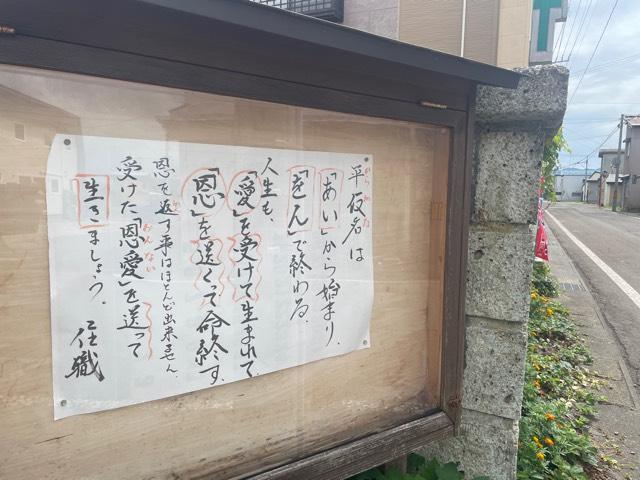 平仮名は
「あい」から始まり、
「をん」で終わる。
人生も、
「愛」を受けて生まれて、
「恩」を送くって命終す。
恩を返す事はほとんど出来ません。
受けた「恩愛」を送って
生きましょう。
住職